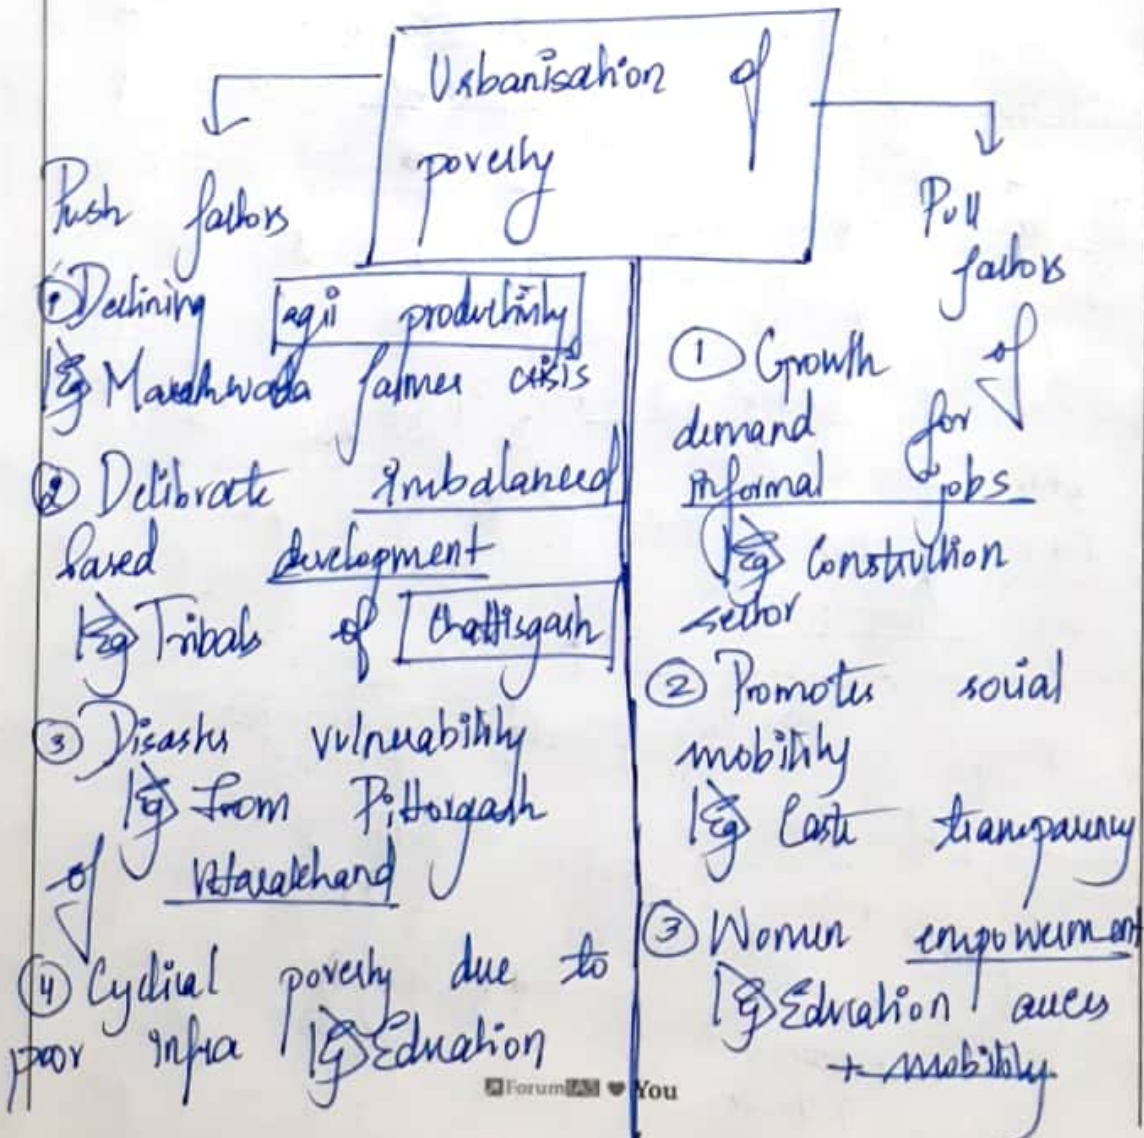 Urbanisation of
poverty
Push factors
① Declining agri productivity
Eg Marathwada farmer crisis
② Delibrate imbalanced
based development
Eg Tribals of Chattisgarh
③ Disaster vulnerability
Eg From Pittorgarh
of Uttarakhand
④ Cyclical poverty due to
poor infra Eg Education
Pull
factors
① Growth of
demand for
informal jobs
Eg Construction
sector
② Promotes social
mobility
Eg Caste transparency
③ Women empowerment
Eg Education access
+ mobility
ForumIAS ♥ You